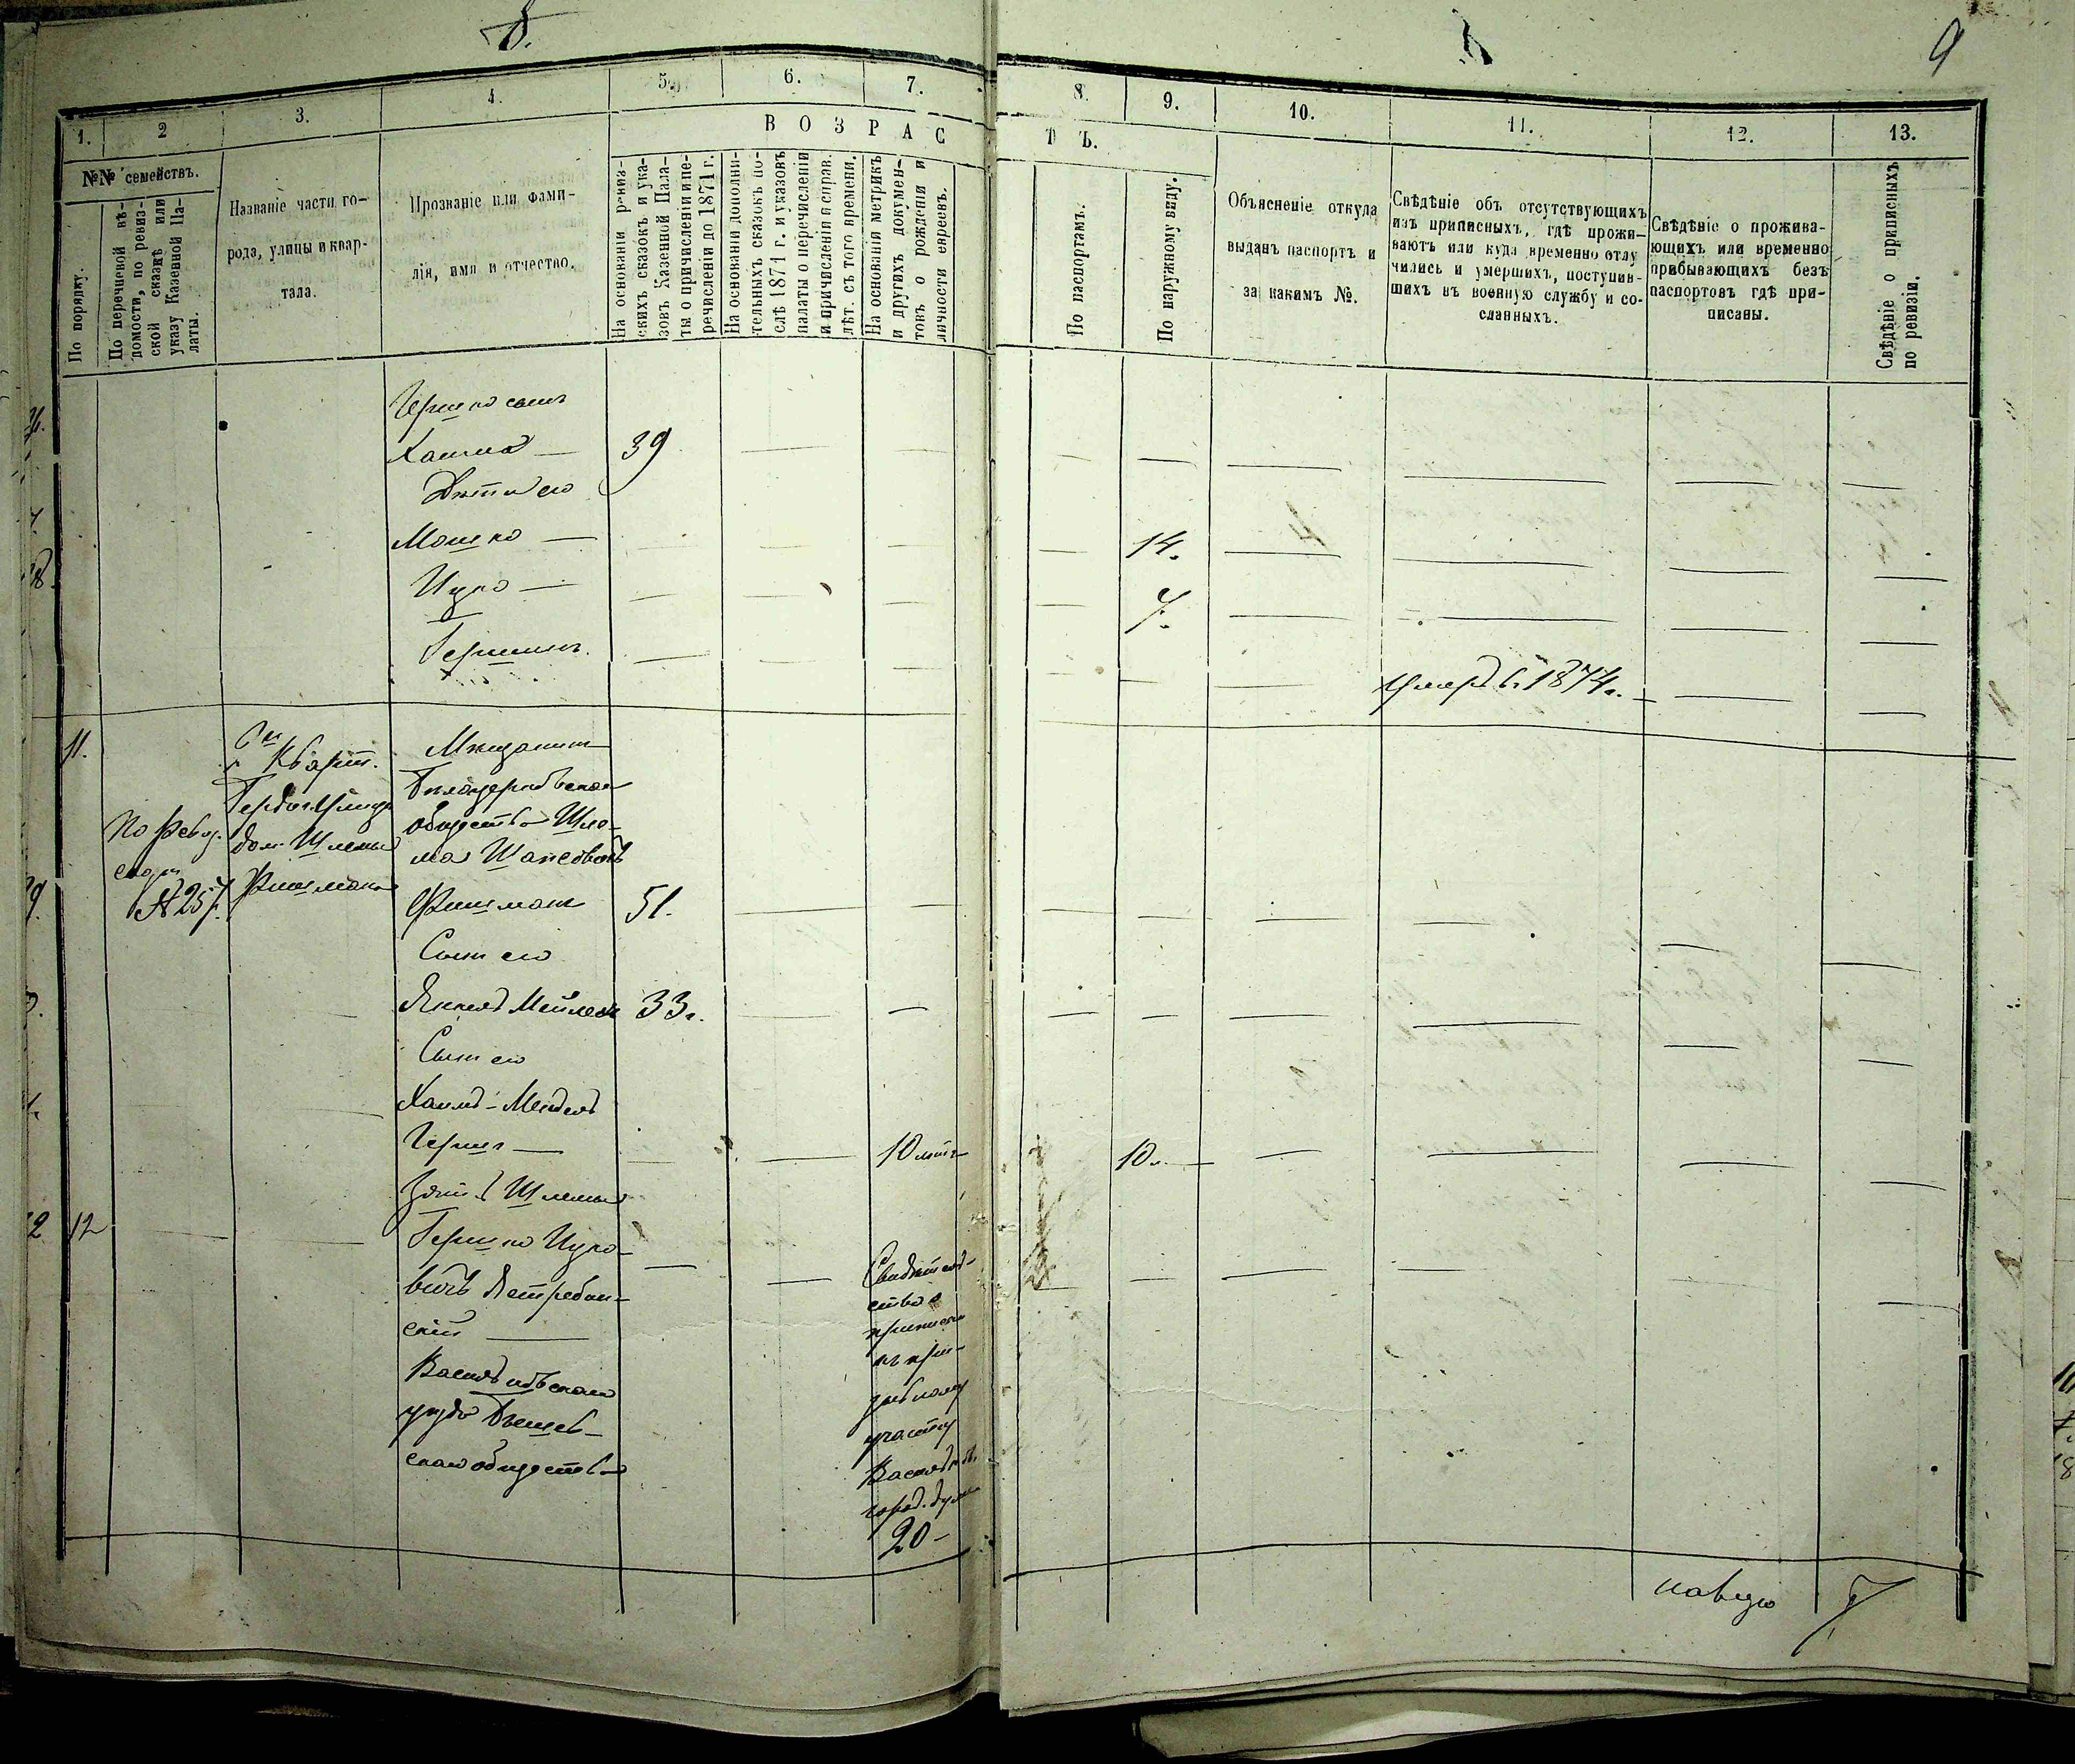 8.
9
1.
2
3.
4.
5.
6.
7.
8.
9.
10.
11.
12.
13.
ВОЗРАСТЪ.
№№ семействъ.
По порядку.
По перечневой вѣ-
домости, по ревиз-
ской сказкѣ или
указу Казенной Па-
латы.
Названіе части го-
рода, улицы и квар-
тала.
Прозваніе или фами-
лія, имя и отчество.
На основаніи ревиз-
скихъ сказокъ и ука-
зовъ Казенной Пала-
ты о причисленіи и пе-
речисленіи до 1871 г.
На основаніи дополни-
тельныхъ сказокъ по-
слѣ 1871 г. и указовъ
палаты о перечисленіи
и причисленіи и справ.
лѣт. съ того времени.
На основаніи метрикъ
и другихъ докумен-
товъ о рожденіи и
личности евреевъ.
По паспортамъ.
По наружному виду.
Объясненіе откуда
выданъ паспортъ и
за какимъ №.
Свѣдѣніе объ отсутствующихъ
изъ приписныхъ, гдѣ прожи-
ваютъ или куда временно отлу
чились и умершихъ, поступив-
шихъ въ военную службу и со-
сланныхъ.
Свѣдѣніе о прожива-
ющихъ или временно
прибывающихъ безъ
паспортовъ гдѣ при-
писаны.
Свѣдѣніе о приписныхъ
по ревизіи.
Гершко сынъ
Хаима — 39
Дѣти его
Мошко — 14.
Ицко — 7.
Гершинъ.
умеръ въ 1874 г.
11.
По Ревиз.
сказк
№ 257.
Кварт.
дом Шлемы
Фишмана
Мѣщанинъ
Бѣлоцерковскаго
общества Шле-
ма
Фишманъ 51.
Сынъ его
Янкель Мейлехъ 33 г.
Сынъ его
Хаимъ-Мендель
Гершъ — 10 лѣтъ 10 л.
Зять Шлемы
12
Гершко Ицко-
вичъ Ястребин-
скій
Васильковскаго
уѣзда
скаго общества
Свидѣтель-
ство о
припискѣ
къ при-
зывному
участку
Васильков.
город. думы
20 –